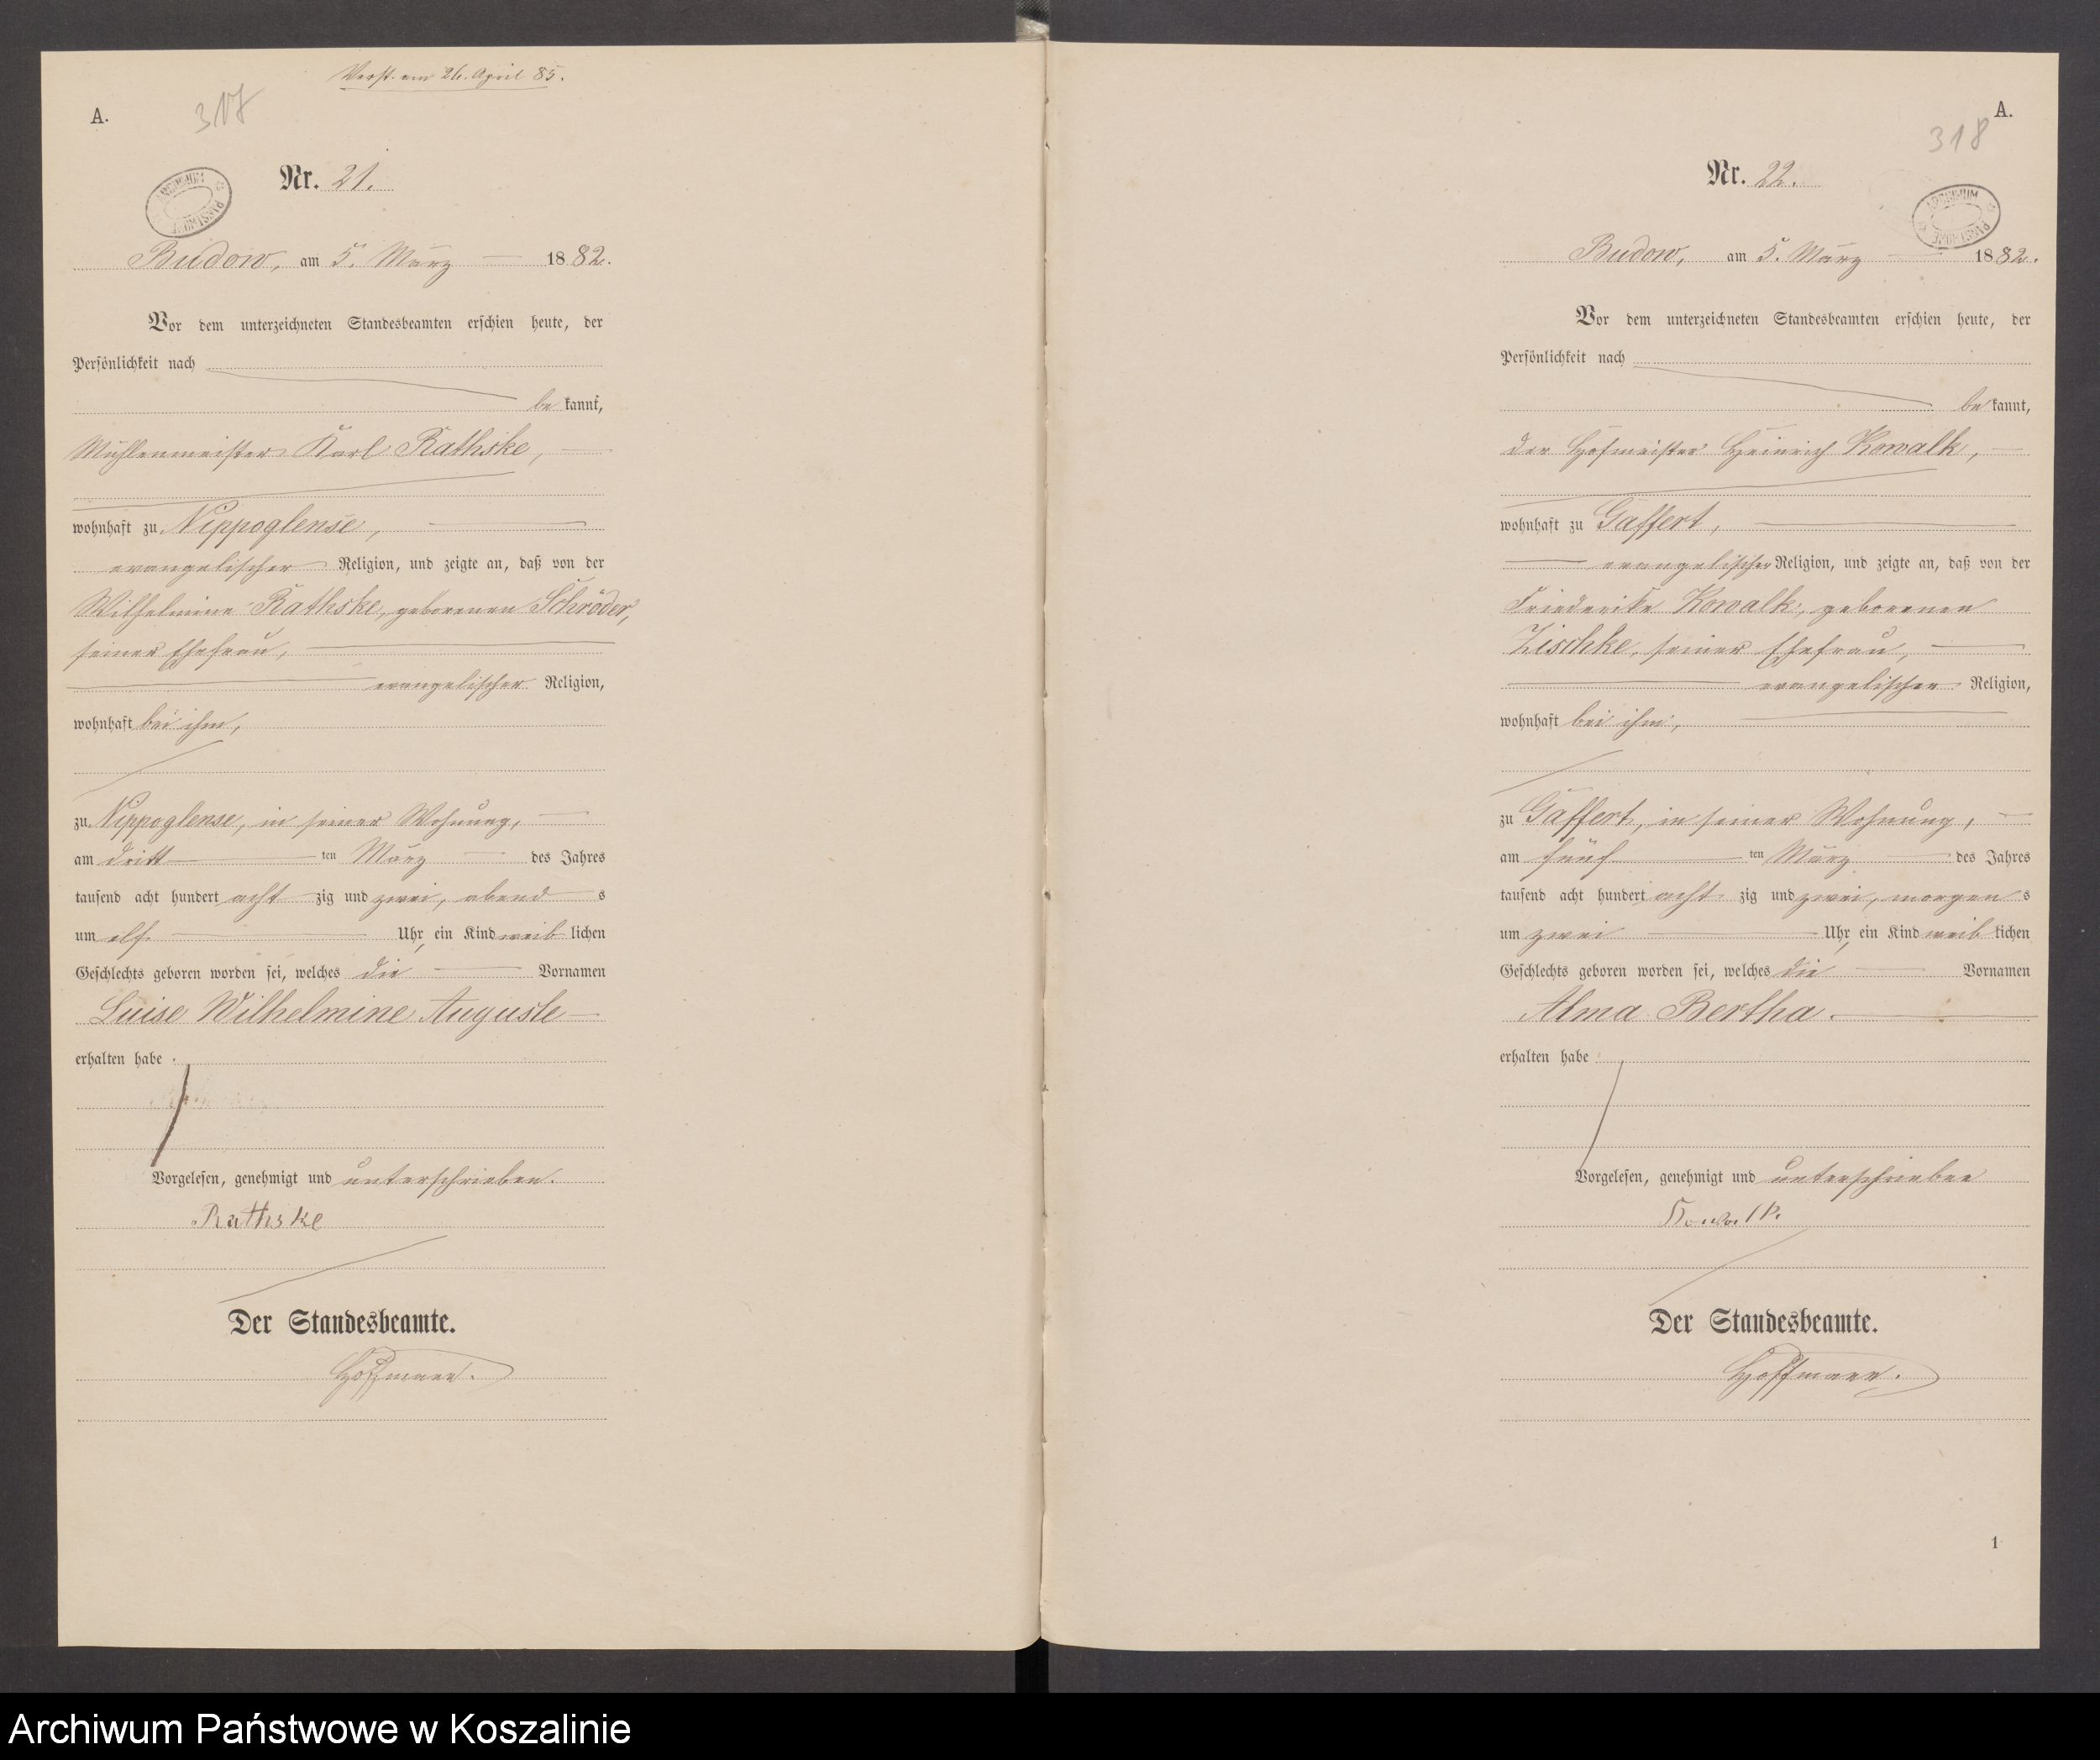 Verst. am 26. April 85.
A.
317
Nr. 21.
ARCHIWUM PAŃSTWOWE
Budow, am 5. März 1882.
Vor dem unterzeichneten Standesbeamten erschien heute, der
Persönlichkeit nach
be kannt,
Mühlenmeister Karl Rathske,
wohnhaft zu Nippoglense,
evangelischer Religion, und zeigte an, daß von der
Wilhelmine Rathske, geborenen Schröder,
seiner Ehefrau,
evangelischer Religion,
wohnhaft bei ihm,
zu Nippoglense, in seiner Wohnung,
am dritt ten März des Jahres
tausend acht hundert acht zig und zwei, abend s
um elf Uhr, ein Kind weib lichen
Geschlechts geboren worden sei, welches die Vornamen
Luise Wilhelmine Auguste
erhalten habe.
Vorgelesen, genehmigt und unterschrieben.
Rathske
Der Standesbeamte.
Hoffmann.
A.
318
Nr. 22.
ARCHIWUM PAŃSTWOWE
Budow, am 5. März 1882.
Vor dem unterzeichneten Standesbeamten erschien heute, der
Persönlichkeit nach
be kannt,
der Hofmeister Heinrich Kowalk,
wohnhaft zu Gaffert,
evangelischer Religion, und zeigte an, daß von der
Friederike Kowalk, geborenen
Zischke, seiner Ehefrau,
evangelischer Religion,
wohnhaft bei ihm,
zu Gaffert, in seiner Wohnung,
am fünf ten März des Jahres
tausend acht hundert acht zig und zwei, morgen s
um zwei Uhr, ein Kind weib lichen
Geschlechts geboren worden sei, welches die Vornamen
Alma Bertha.
erhalten habe
Vorgelesen, genehmigt und unterschrieben
Kowalk.
Der Standesbeamte.
Hoffmann.
1
Archiwum Państwowe w Koszalinie